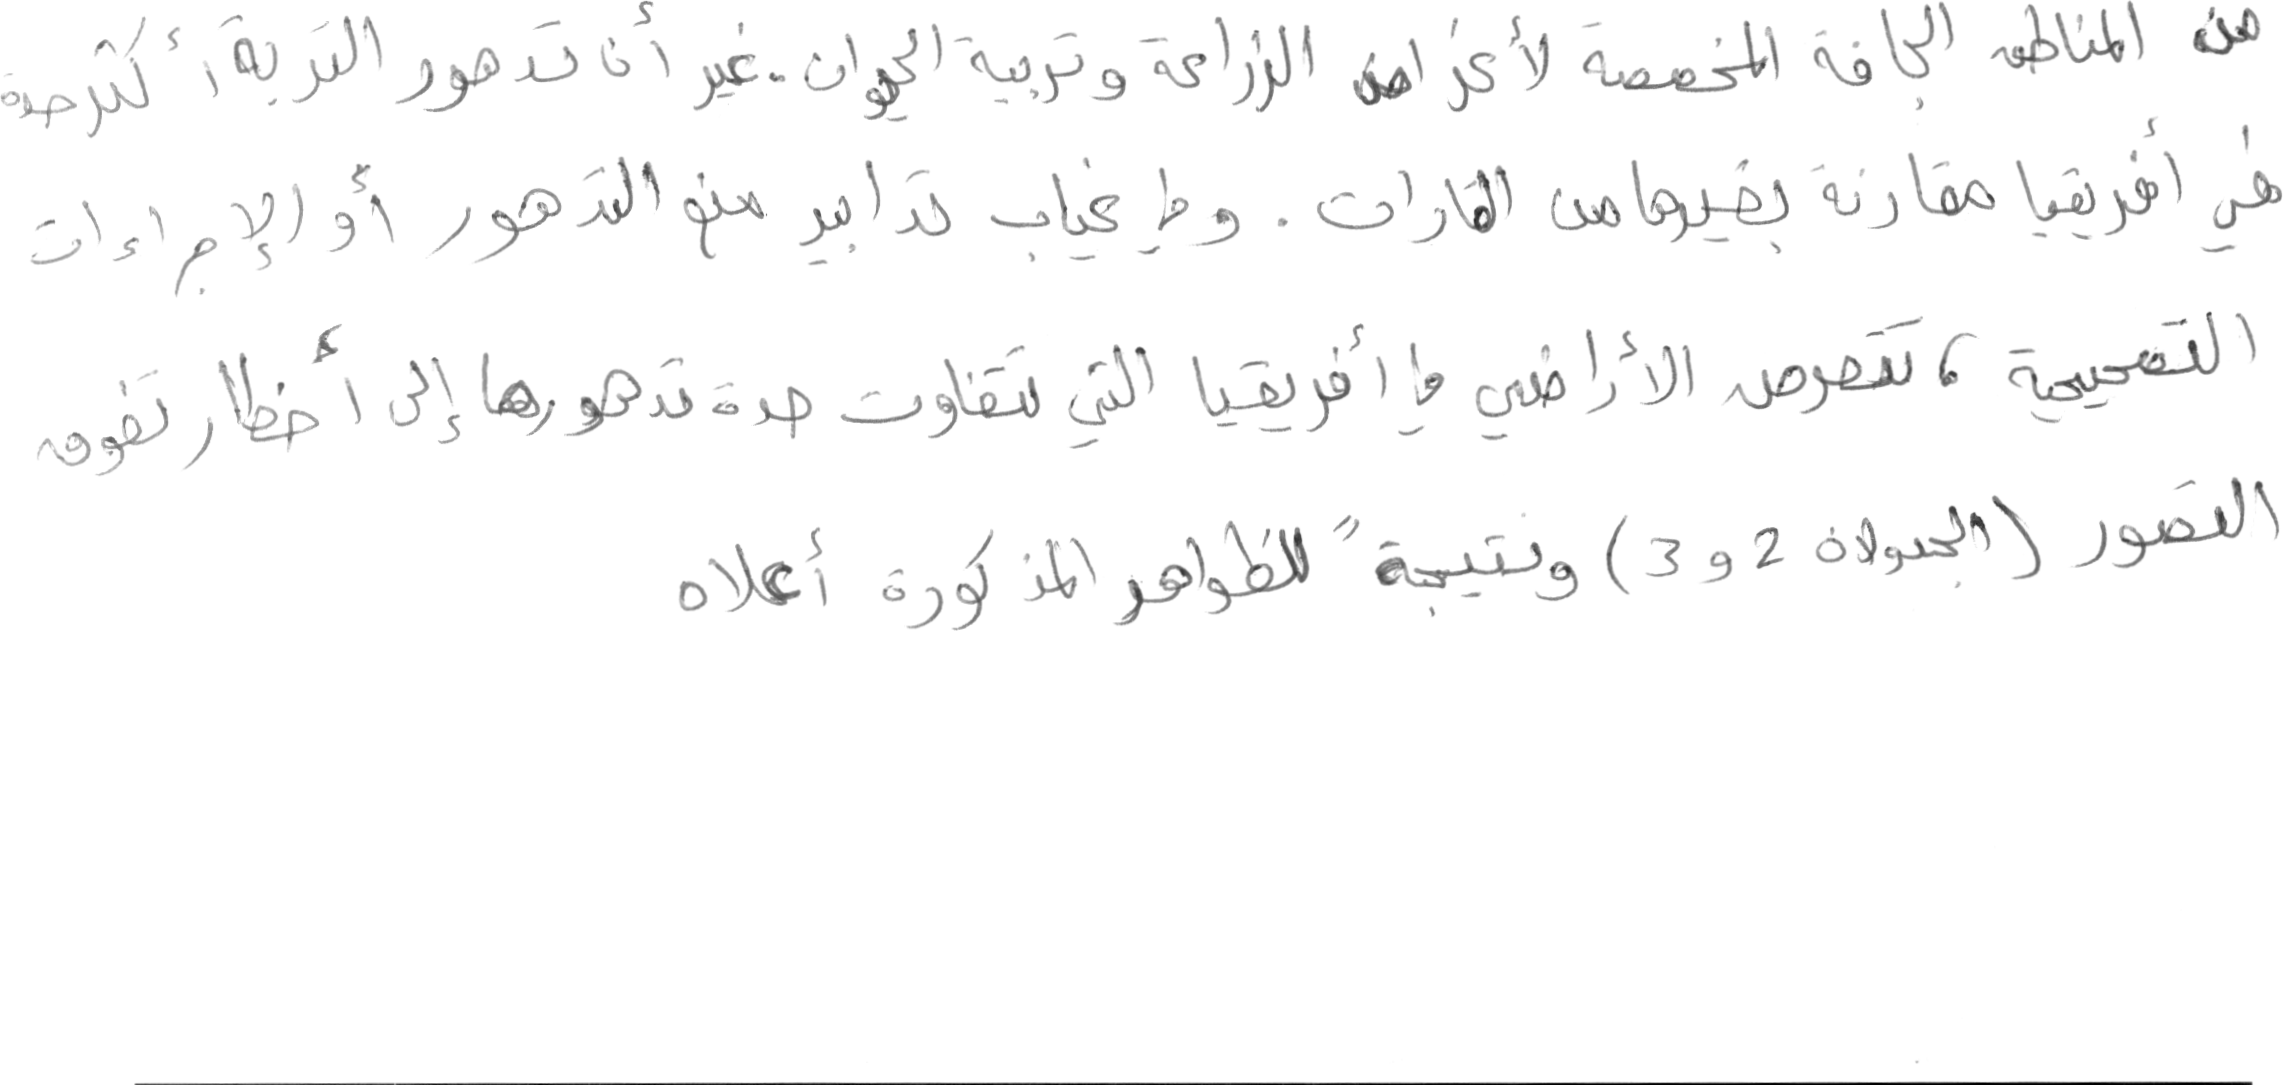 من المناطق الجافة المخصصة لأغراض الزراعة وتربية الحيوان. غير أن تدهور التربة أكثر حدة
في أفريقيا مقارنة بغيرها من القارات. وفي غياب تدابير منع التدهور أو الإجراءات
التصحيحية، تتعرض الأراضي في أفريقيا التي تتفاوت حدة تدهورها إلى أخطار تفوق
التصور (الجدولان 2 و 3) ونتيجة" للظواهر المذكورة أعلاه